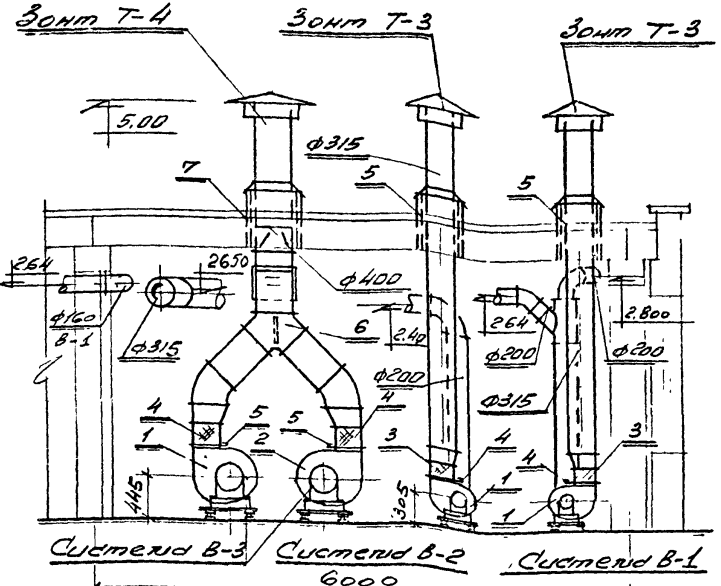 Зонт Т-4
Зонт Т-3
Зонт Т-3
5.00
ф315
7
5
5
264
2650
ф400
ф160
В-1
ф315
6
2.40
264
2.800
ф200
ф200
ф200
ф315
4
5
5
4
1
2
3
4
1
4
3
1
445
305
Система В-3
Система В-2
Система В-1
6000